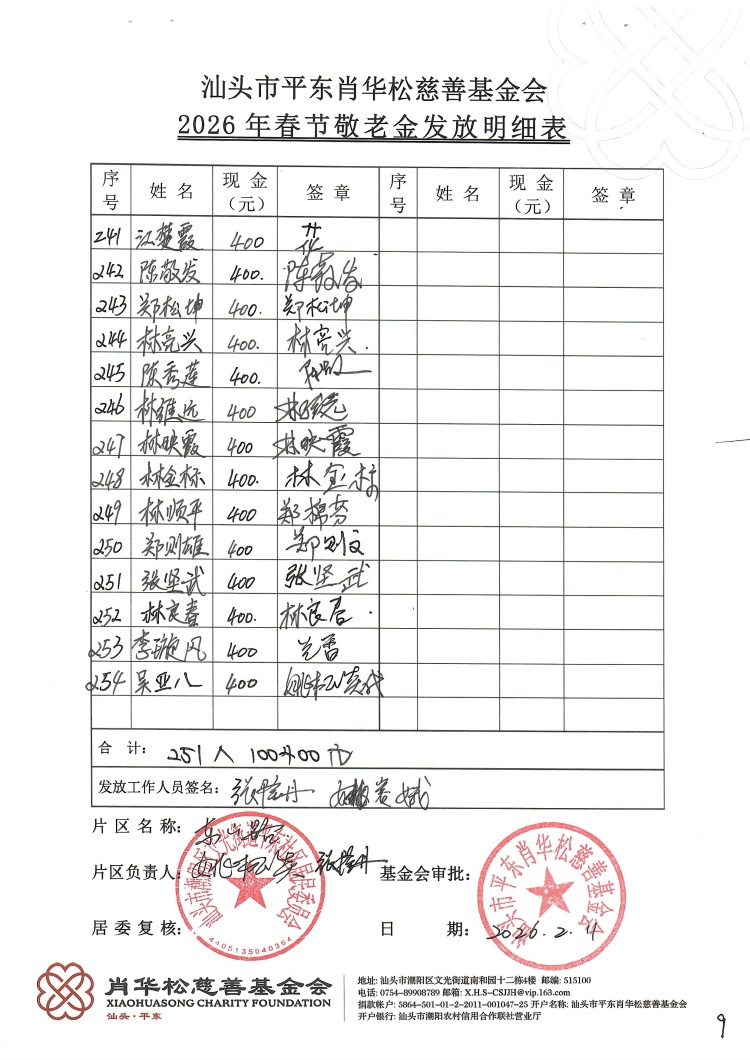 汕头市平东肖华松慈善基金会
2026 年春节敬老金发放明细表
序号 姓名 现金（元） 签章 序号 姓名 现金（元） 签章
241 江楚霞 400
242 陈敬发 400. 陈敬发
243 郑松坤 400. 郑松坤
244 林亮兴 400. 林亮兴.
245 陈秀莲 400.
246 林雄远 400
247 林映霞 400 林映霞
248 林金标 400. 林金标
249 林顺平 400 郑棉芬
250 郑则雄 400
251 张坚武 400 张坚武
252 林良春 400. 林良春.
253 李璇风 400
254 吴亚八 400
合 计: 251人 100400
发放工作人员签名:
片区名称:
片区负责人:
基金会审批:
居委复核:
日 期: 2026.2.11
4405135040364
汕头市平东肖华松慈善基金会
肖华松慈善基金会
XIAOHUASONG CHARITY FOUNDATION
汕头·平东
地址: 汕头市潮阳区文光街道南和园十二栋4楼 邮编: 515100
电话: 0754-89908789 邮箱: X.H.S-CSJJH@vip.163.com
捐款帐户: 5864-501-01-2-2011-001047-25 开户名称: 汕头市平东肖华松慈善基金会
开户银行: 汕头市潮阳农村信用合作联社营业厅
9